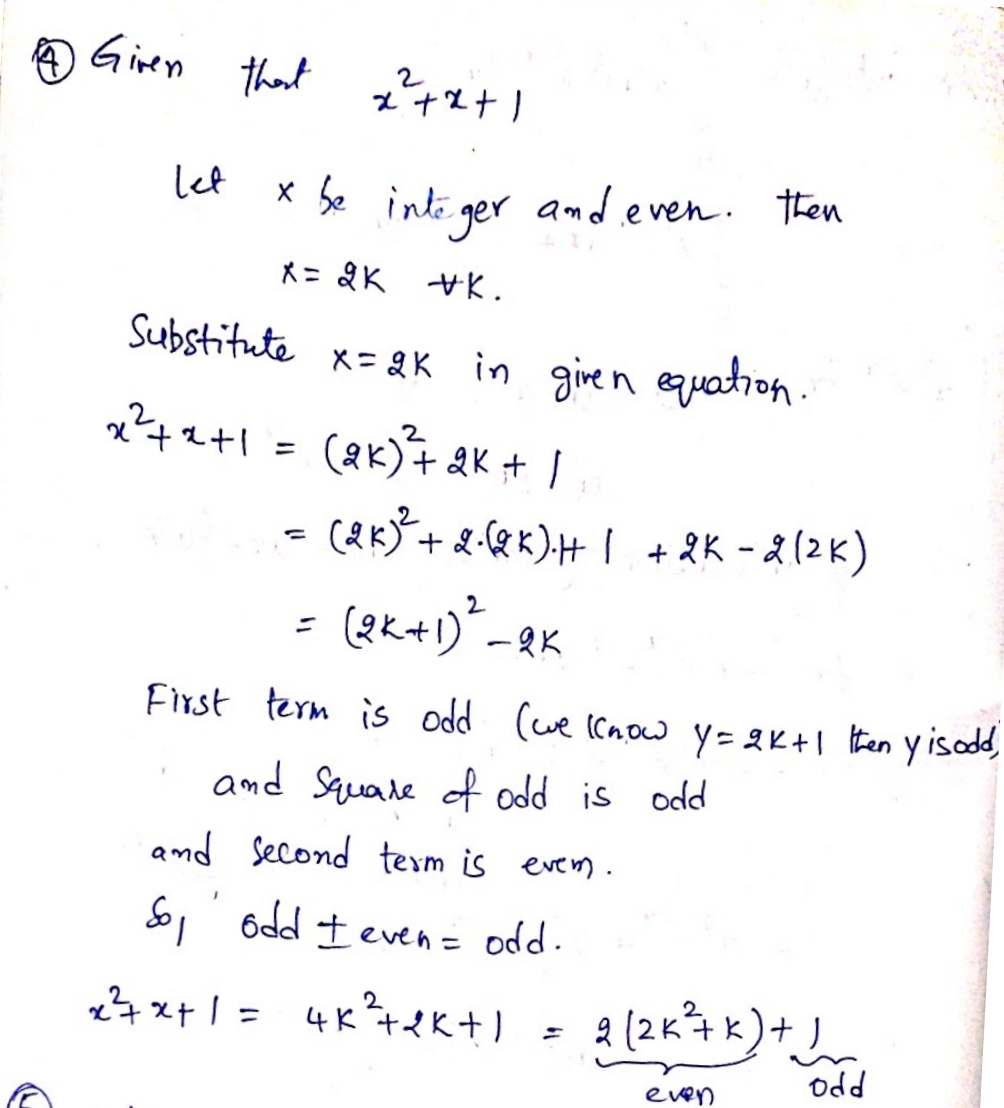 ④ Given that x²+x+1
Let x be integer and even. then
x = 2K ∀K.
Substitute x = 2K in given equation.
x²+x+1 = (2K)²+ 2K + 1
= (2K)² + 2.(2K).1+ 1 + 2K - 2(2K)
= (2K+1)² - 2K
First term is odd (we know y = 2K+1 then y is odd)
and Square of odd is odd
and second term is even.
So, odd ± even = odd.
x²+x+1 = 4K²+2K+1 = 2(2K²+K)+1
even odd